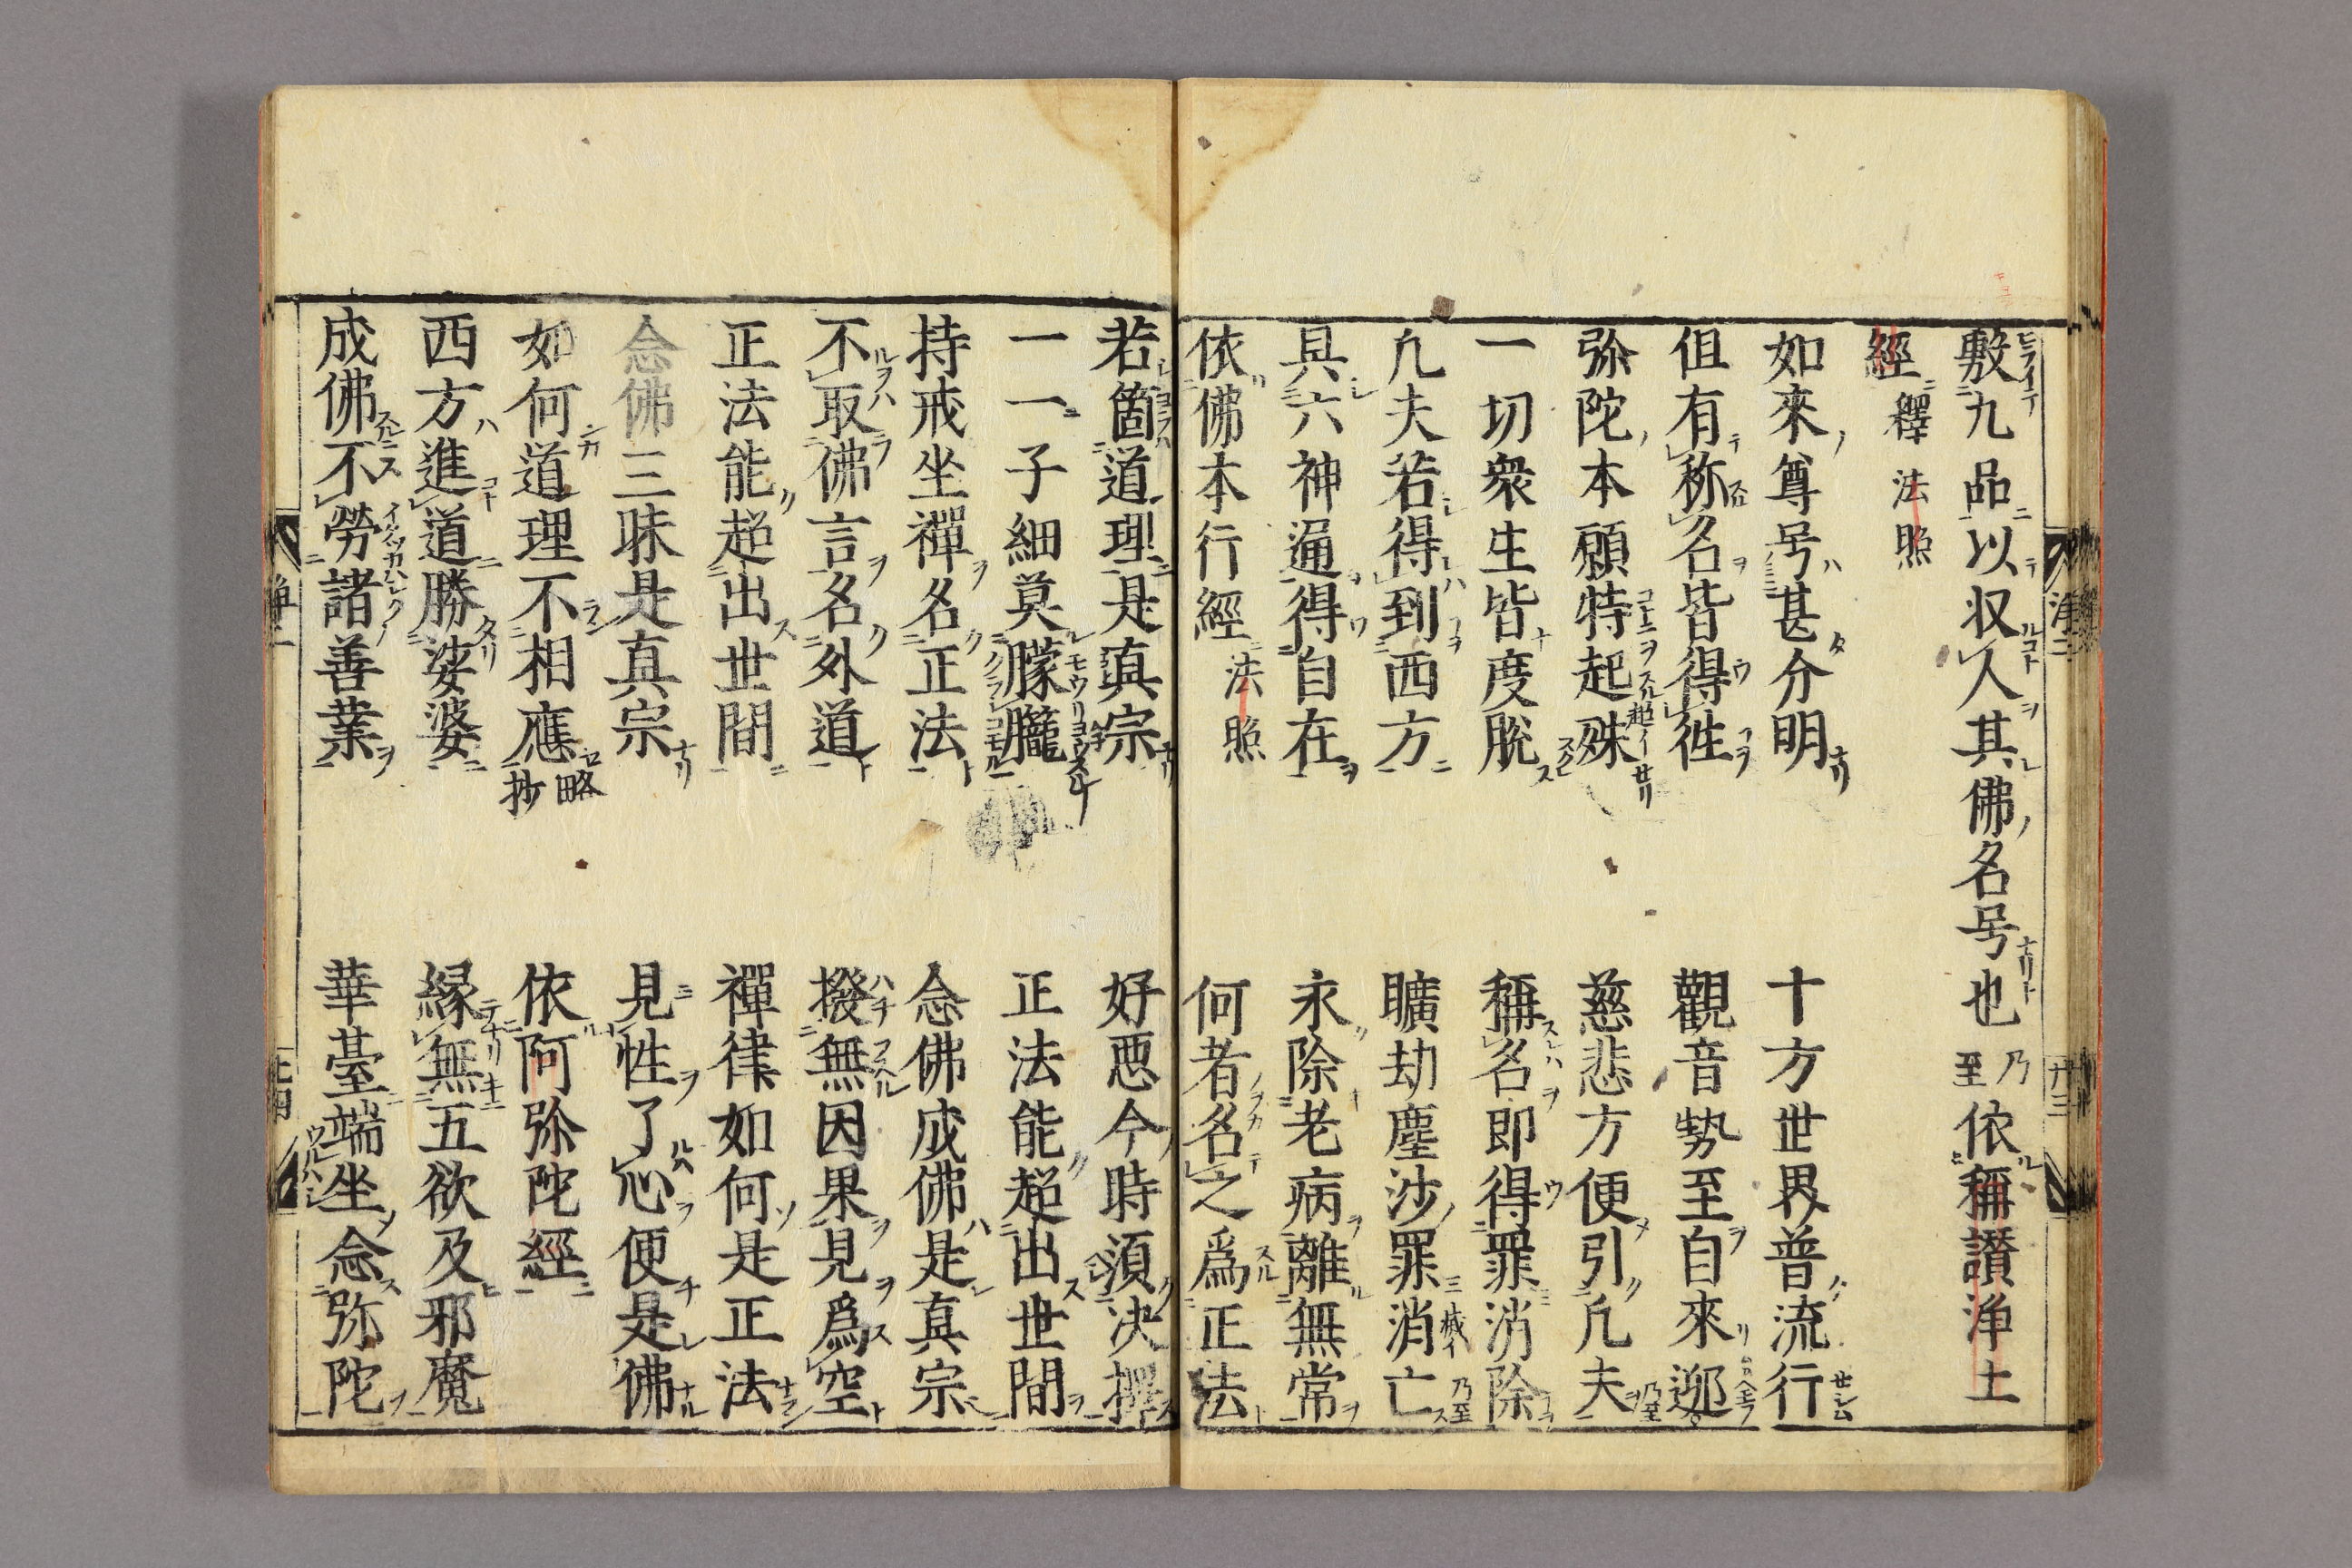 敷九品以収人其佛名号也乃至依稱讃浄土
經釋法照
如來尊号甚分明　十方世界普流行
但有称名皆得徃　觀音勢至自來迎
弥陀本願特起殊　慈悲方便引凢夫
一切衆生皆度脱　稱名即得罪消除
凢夫若得到西方　曠劫塵沙罪消亡
具六神通得自在　永除老病離無常
依佛本行經法照　何者名之爲正法
若箇道理是真宗　好悪今時須决擇
一一子細莫朦朧　正法能超出世間
持戒坐禪名正法　念佛成佛是真宗
不取佛言名外道　撥無因果見爲空
正法能超出世間　禪律如何是正法
念佛三昧是真宗　見性了心便是佛
如何道理不相應略抄　依阿弥陀經
西方進道勝娑婆　縁無五欲及邪魔
成佛不勞諸善業　華臺端坐念弥陀